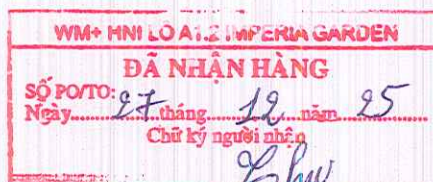 WM+ HNI LÔ A1.2 IMPERIA GARDEN
ĐÃ NHẬN HÀNG
SỐ PO/TO:
Ngày.....27.....tháng.....12.....năm.....25.....
Chữ ký người nhận